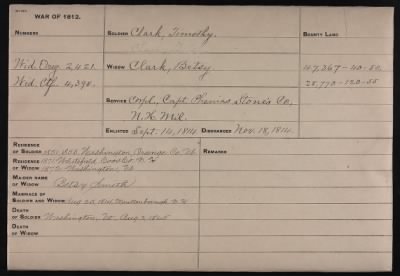 WAR OF 1812.
NUMBERS
SOLDIER Clark, Timothy.
BOUNTY LAND
Wid. Orig. 2421
WIDOW Clark, Betsy
47,367-40-50
Wid. Ctf. 4,390.
25,770-120-55
SERVICE Corpl., Capt. Phineas Stone's Co,
N.H. Mil.
ENLISTED Sept. 14, 1814 DISCHARGED Nov. 18, 1814.
RESIDENCE OF SOLDIER 1851, 1855, Washington Orange Co. Vt.
REMARKS
RESIDENCE OF WIDOW 1871 N.H.
1878 Washington, Vt.
MAIDEN NAME OF WIDOW Betsy Smith
MARRIAGE OF SOLDIER AND WIDOW Aug 28, 1814, N.H.
DEATH OF SOLDIER Washington, Vt. Aug 3,
DEATH OF WIDOW